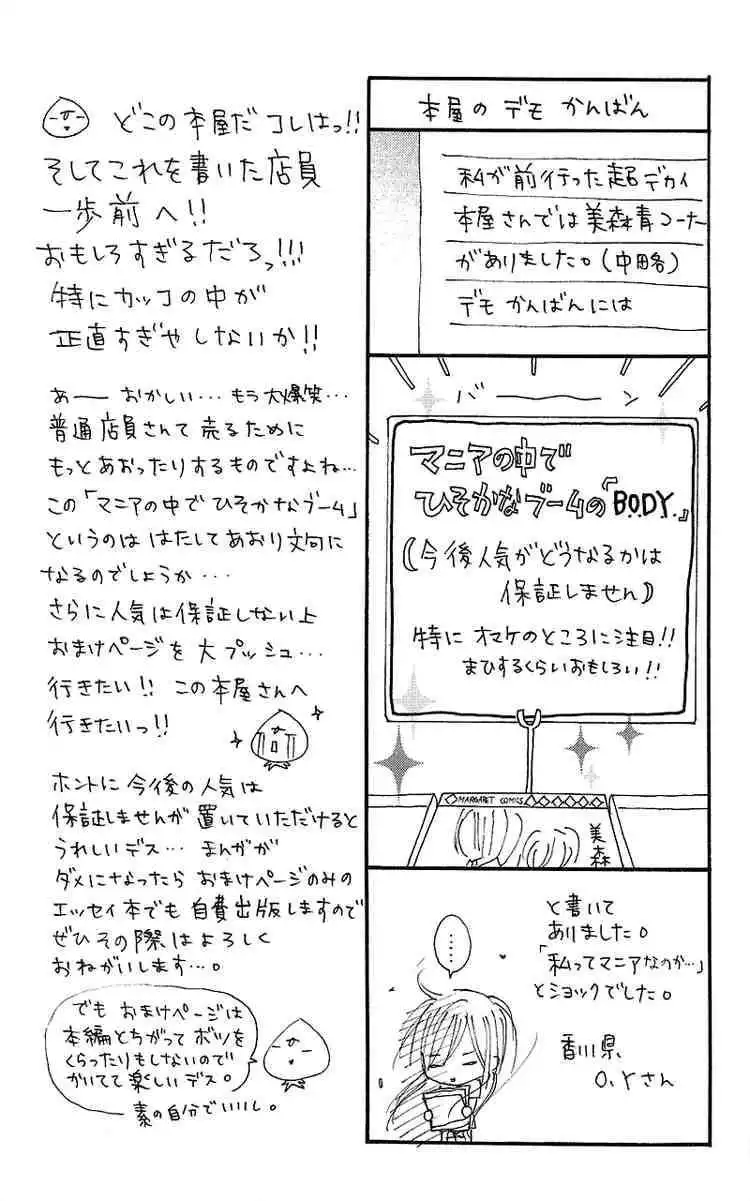 本屋の デモ かんばん
私が前行った超デカイ
本屋さんでは美森青コーナー
がありました。(中略)
デモ かんばんには
バーーーン
マニアの中で
ひそかなブームの『B.O.D.Y.』
(今後人気がどうなるかは
保証しません)
特に オマケのところに注目!!
まひするくらいおもしろい!!
MARGARET COMICS
美森
……
と書いて
ありました。
「私ってマニアなのか…」
とショックでした。
香川県
O.Yさん
どこの本屋だ コレはっ!!
そしてこれを書いた店員
一歩前へ!!
おもしろすぎるだろっ!!!
特にカッコの中が
正直すぎやしないか!!
あーー おかしい… もう大爆笑…
普通店員さんて 売るために
もっとあおったりするものですよね…
この「マニアの中で ひそかなブーム」
というのは はたしてあおり文句に
なるのでしょうか…
さらに人気は保証しない上
おまけページを 大プッシュ…
行きたい!! この本屋さんへ
行きたいっ!!
ホントに今後の人気は
保証しませんが 置いていただけると
うれしいデス… まんがが
ダメになったら おまけページのみの
エッセイ本でも 自費出版しますので
ぜひその際はよろしく
おねがいします…。
でも おまけページは
本編とちがって ボツを
くらったりもしないので
かいてて 楽しいデス。
素の自分でいいし。